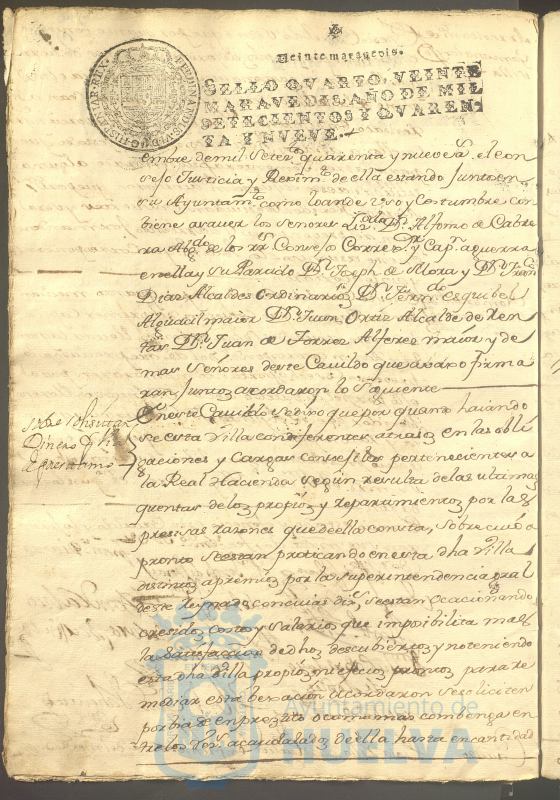 Veinte maravedis.
SELLO QVARTO, VEINTE
MARAVEDIS, AÑO DE MIL
SETECIENTOS Y QVAREN-
TA Y NVEVE.
embre de mil Setez.os quarenta y nueve as. el con
sejo Justicia y Reximto. de ella estando Juntos en
su Ayuntamto. como lo an de vso y Costumbre con
biene a sauer los señores Lizdo. Dn. Alfonso de Cabre
ra Abgdo. de los Rs. Consejos Correxr. y Capn. a guerra
en ella y su Partido Dn. Joseph de Mora y Dn. Juan
Diaz Alcaldes ordinarios Dn. Fernando esquibel
Alguacil maior Dn. Juan Ortiz Alcalde de Ren
tas Dn. Juan de Torres Alferez maior y de
mas Señores deste Cauildo que auaxo firma
ran Juntos acordaron lo Siguiente
sobre solisitar
Dinero
Enprestimo
En este Cauildo se dixo que por quanto haiando
se esta Villa con diferentes atrasos en las obli
gaciones y Cargas Consejiles pertenescientes a
la Real Hacienda Según resulta de las ultimas
quentas de los propios y repartimientos por las
presisas razones que de ella consta, sobre cuio a
pronto se estan practicando en esta dha Villa
distintos apremios por la superintendencia gral
deste Reynado, se estan ocacionando
cresidos costos y Salarios que imposibilita mas
la Satisfaccion de dhos descubiertos y no teniendo
esta dha Villa propios ni efectos prontos para re
mediar esta bexasion acordaron se soliciten
por via de enprestito o como mas conbenga en
tre los acaudalados de ella hasta en cantidad
Ayuntamiento de
HUELVA